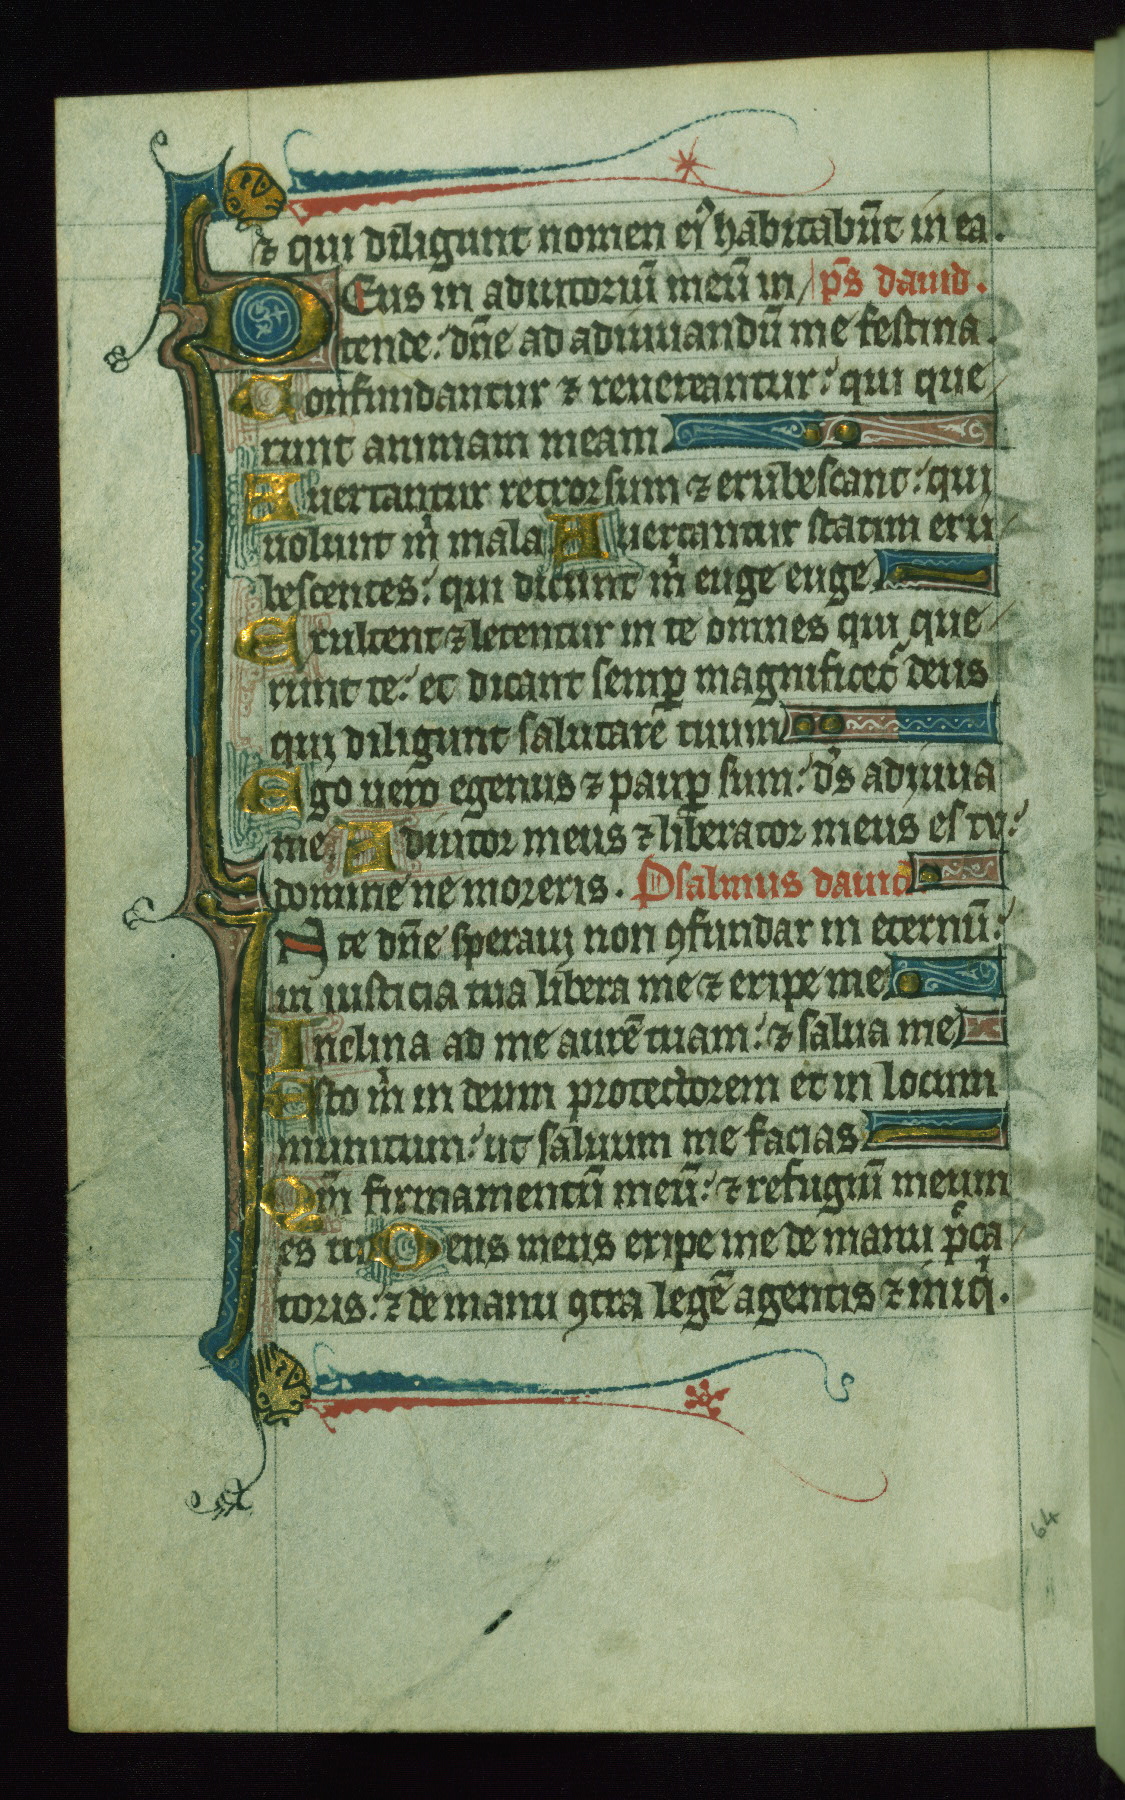 ⁊ qui diligunt nomen ei⁹ habitabūt in ea.
DEus in adiutoriū meū in ps̄ dauid.
tende: dn̄e ad adiuuandū me festina.
Confundantur ⁊ reuereantur: qui que
runt animam meam
Auertantur retrorsum ⁊ erubescant: qui
uolunt m̍ mala Auertantur statim eru
bescentes: qui dicunt m̍ euge euge
Exultent ⁊ letentur in te omnes qui que
runt te: et dicant semꝑ magnificet᷑ deus
qui diligunt salutare tuum
Ego uero egenus ⁊ pauꝑ sum: ds̄ adiuua
me Adiutor meus ⁊ liberator meus es tu:
domine ne moreris. Psalmus dauid
IN te dn̄e speraui non ꝯfundar in eternū:
in iusticia tua libera me ⁊ eripe me
Inclina ad me aurē tuam: ⁊ salua me
Esto m̍ in deum protectorem et in locum
munitum: ut saluum me facias
Qm̄ firmamentū meū: ⁊ refugiū meum
es tu Deus meus eripe me de manu pͨca
toris: ⁊ de manu ꝯtra legē agentis ⁊ iniq̍.
64